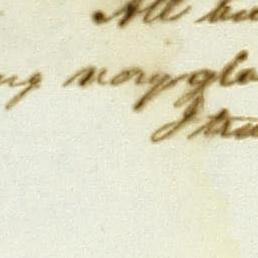 All bu
ng very gla
I tru